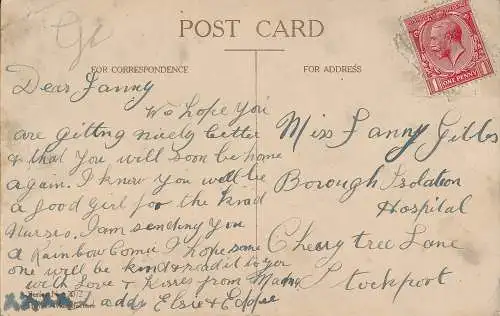 POST CARD
FOR CORRESPONDENCE
FOR ADDRESS
ONE PENNY
Dear Fanny
We hope you
are gitting nicely better
& that you will soon be home
again. I know you will be
a good girl for the kind
Nurses. I am sending you
a Rainbow Comic I hope some
one will be kind & read it to you
with Love & Kisses from
Daddy Elsie & Eddie
Miss Fanny Gibbs
Borough Isolation
Hospital
Cherry tree Lane
Stockport